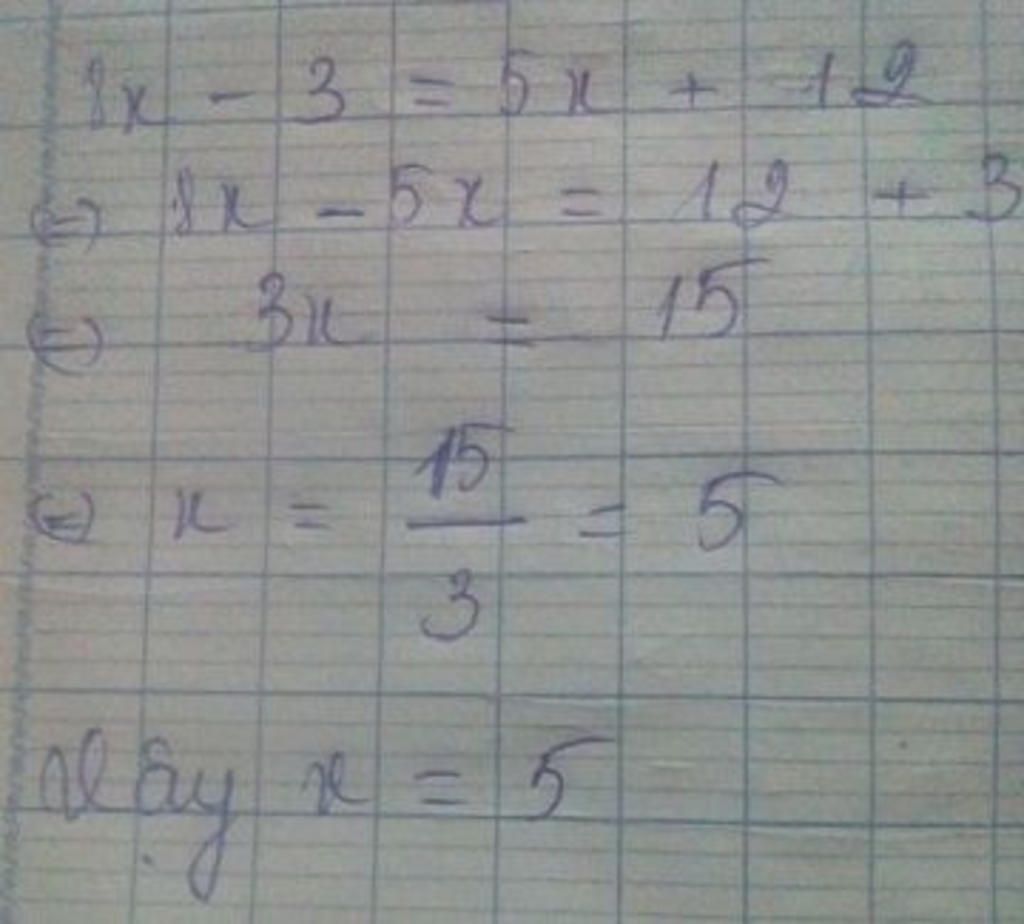 8x - 3 = 5x + 12
⇔ 8x - 5x = 12 + 3
⇔ 3x = 15
⇔ x = 15/3 = 5
Vậy x = 5